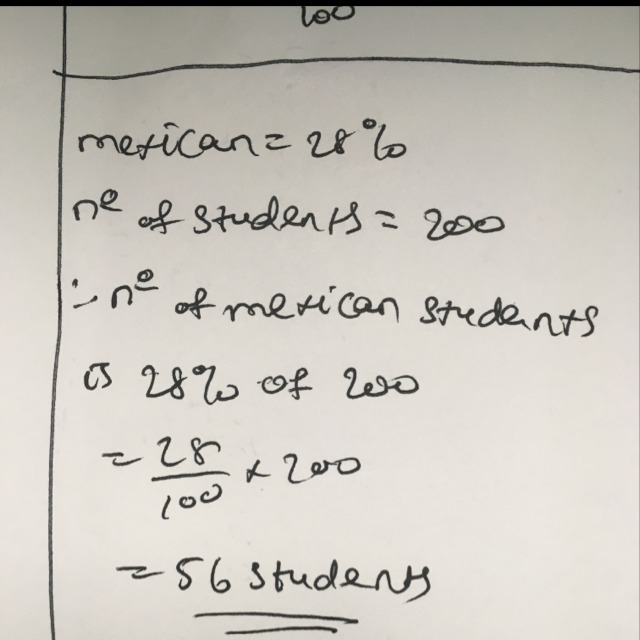 100
mexican = 28%
nº of students = 200
∴ nº of mexican students
is 28% of 200
= 28/100 × 200
= 56 students